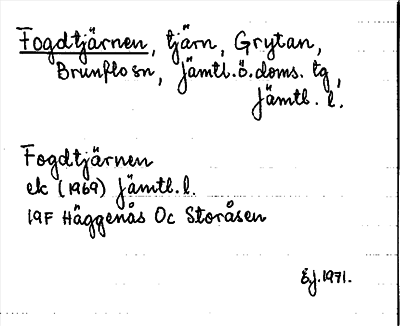 Fogdtjärnen, tjärn, Grytan,
Brunflo sn, Jämtl.ö.doms. tg,
Jämtl. l.
Fogdtjärnen
ek (1969) Jämtl.l.
19F Häggenås Oc Storåsen
EJ.1971.